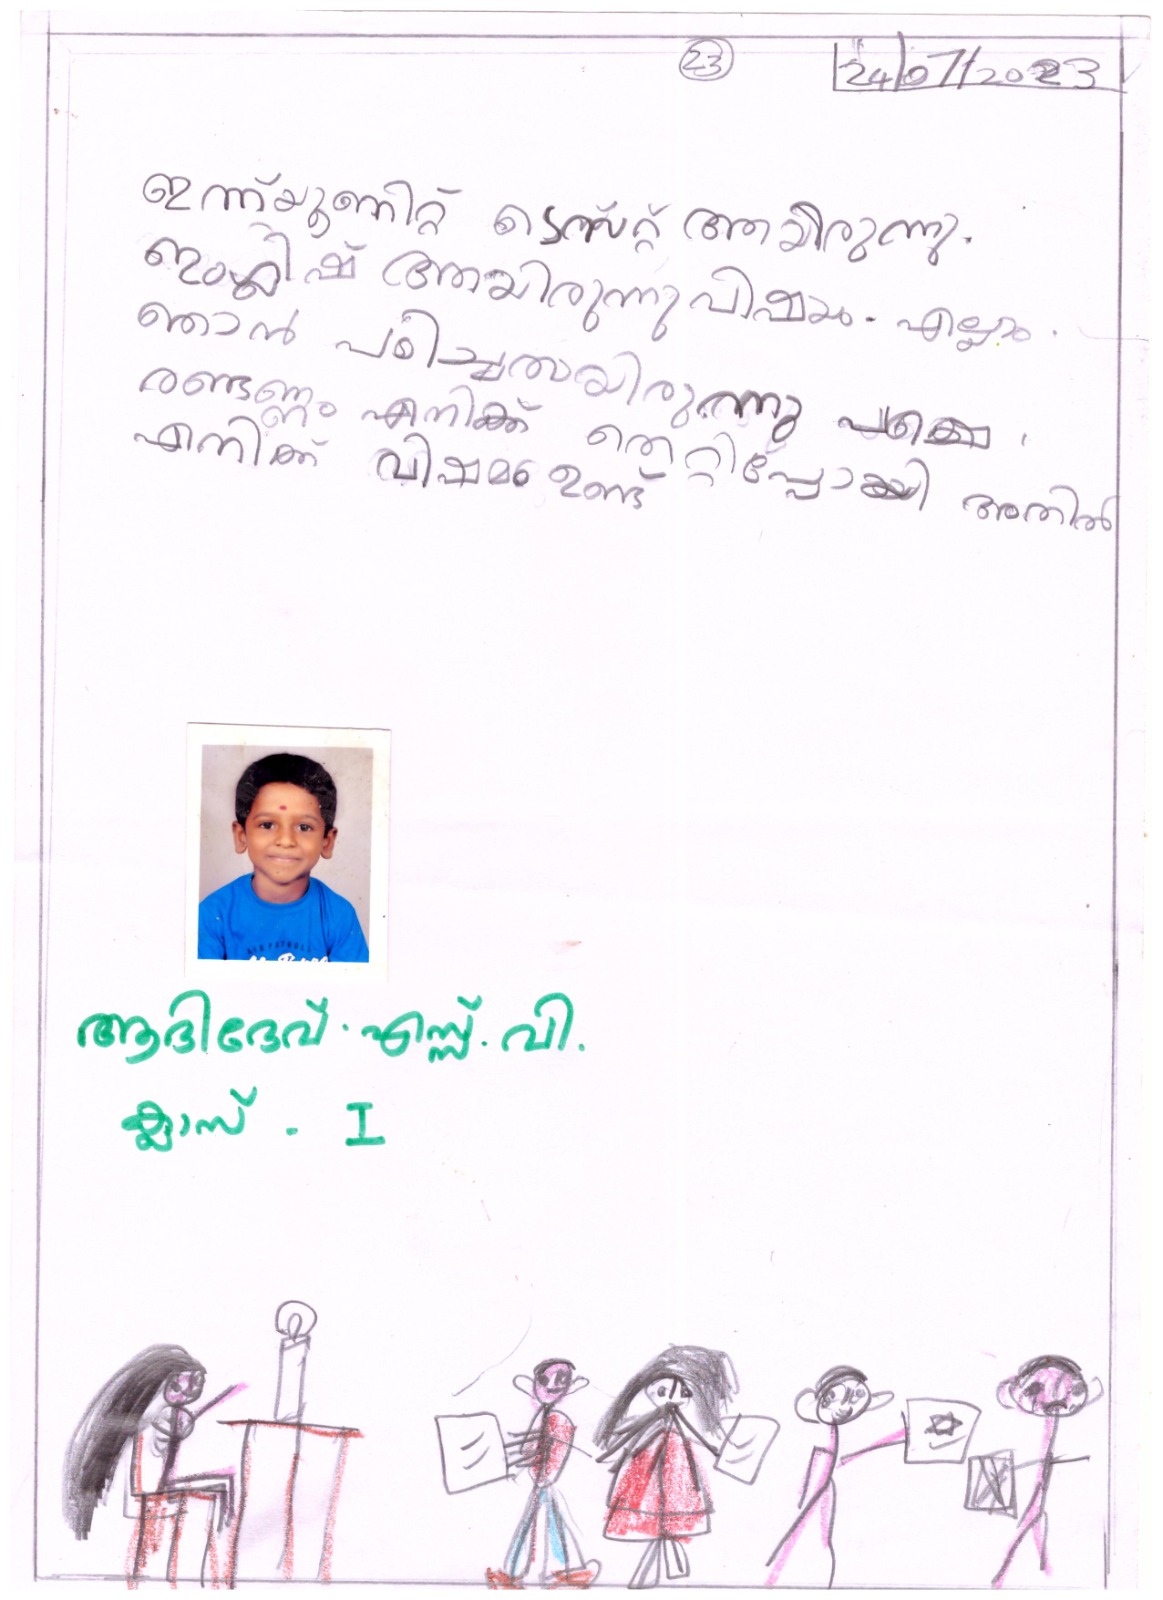 23
24/07/2023
ഇന്ന് യൂണിറ്റ് ടെസ്റ്റ് ആയിരുന്നു.
ഇംഗ്ലിഷ് ആയിരുന്നു വിഷയം. എല്ലാം.
ഞാൻ പഠിച്ചതായിരുന്നു പക്ഷെ
രണ്ടണ്ണം എനിക്ക് തെറ്റിപ്പോയി അതിൽ
എനിക്ക് വിഷമം ഉണ്ട്
ആദിദേവ്. എസ്സ്. വി.
ക്ലാസ് . I